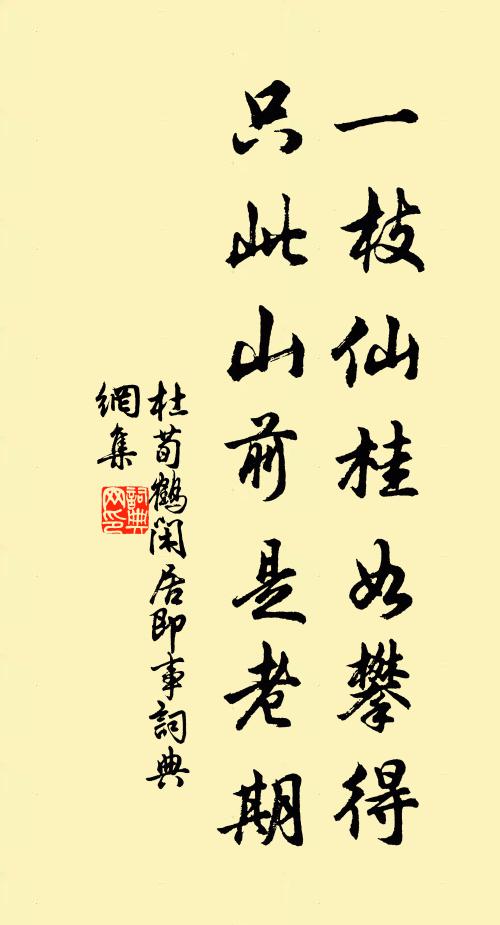 一枝仙桂如攀得
只此山前是老期
杜荀鶴閑居即事詞典
網集
詞典
网印